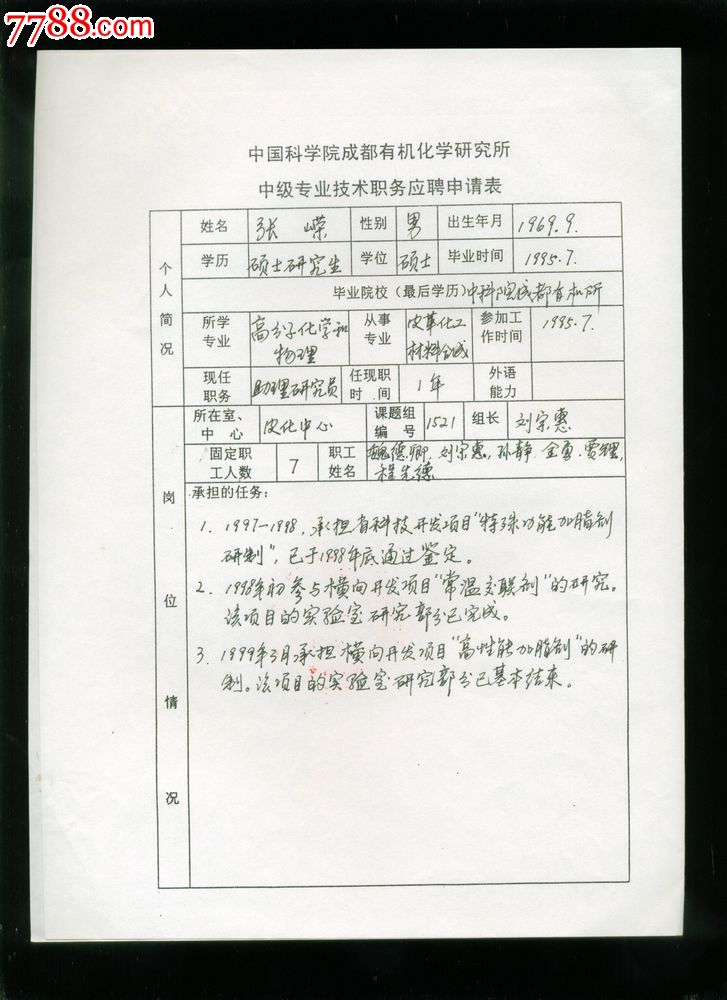 7788.com
中国收藏热线
中国科学院成都有机化学研究所
中级专业技术职务应聘申请表
个人简况
姓名 张嵘 性别 男 出生年月 1969.9.
学历 硕士研究生 学位 硕士 毕业时间 1995.7.
毕业院校（最后学历）中科院成都有机所
所学专业 高分子化学和物理 从事专业 皮革化工材料合成 参加工作时间 1995.7.
现任职务 助理研究员 任现职时间 1年 外语能力
岗位情况
所在室、中心 皮化中心 课题组编号 1521 组长 刘宗惠
固定职工人数 7 职工姓名 魏德卿, 刘宗惠, 孙静, 金勇, 贾锂,
承担的任务：
1. 1997-1998, 承担省科技开发项目“特殊功能加脂剂
研制”, 已于1998年底通过鉴定。
2. 1998年初参与横向开发项目“常温交联剂”的研究。
该项目的实验室研究部分已完成。
3. 1999年3月承担横向开发项目“高性能加脂剂”的研
制。该项目的实验室研究部分已基本结束。